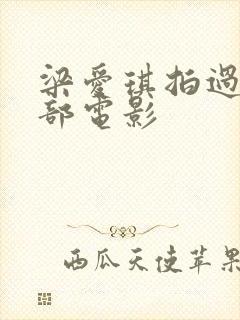 梁愛琪拍過
部電影
西瓜天使苹果